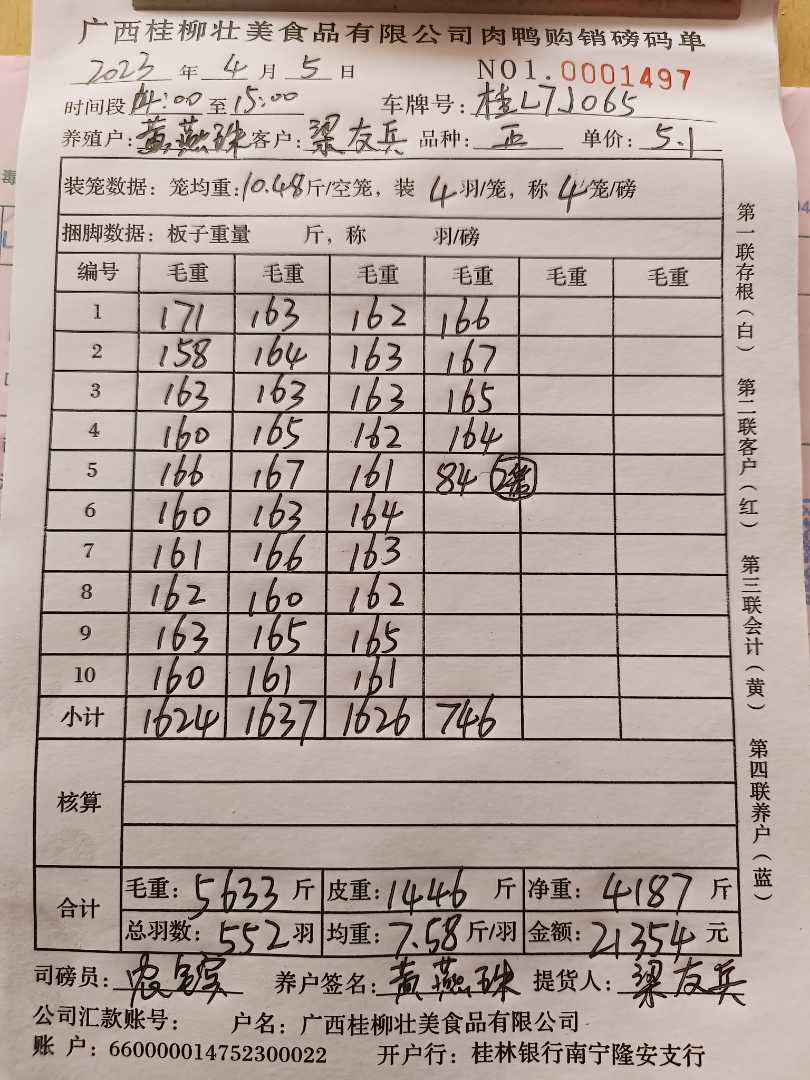 广西桂柳壮美食品有限公司肉鸭购销磅码单
2023 年 4 月 5 日 NO1.0001497
时间段 14:00 至 15:00 车牌号: 桂L7J065
养殖户: 黄燕珠 客户: 梁友兵 品种: 正 单价: 5.1
装笼数据: 笼均重: 10.48 斤/空笼, 装 4 羽/笼, 称 4 笼/磅
捆脚数据: 板子重量 斤, 称 羽/磅
编号 毛重 毛重 毛重 毛重 毛重 毛重
1 171 163 162 166
2 158 164 163 167
3 163 163 163 165
4 160 165 162 164
5 166 167 161 84 2笼
6 160 163 164
7 161 166 163
8 162 160 162
9 163 165 165
10 160 161 161
小计 1624 1637 1626 746
核算
合计 毛重: 5633 斤 皮重: 1446 斤 净重: 4187 斤
总羽数: 552 羽 均重: 7.58 斤/羽 金额: 21354 元
司磅员: 养户签名: 黄燕珠 提货人: 梁友兵
公司汇款账号: 户名: 广西桂柳壮美食品有限公司
账 户: 660000014752300022 开户行: 桂林银行南宁隆安支行
第一联存根(白) 第二联客户(红) 第三联会计(黄) 第四联养户(蓝)